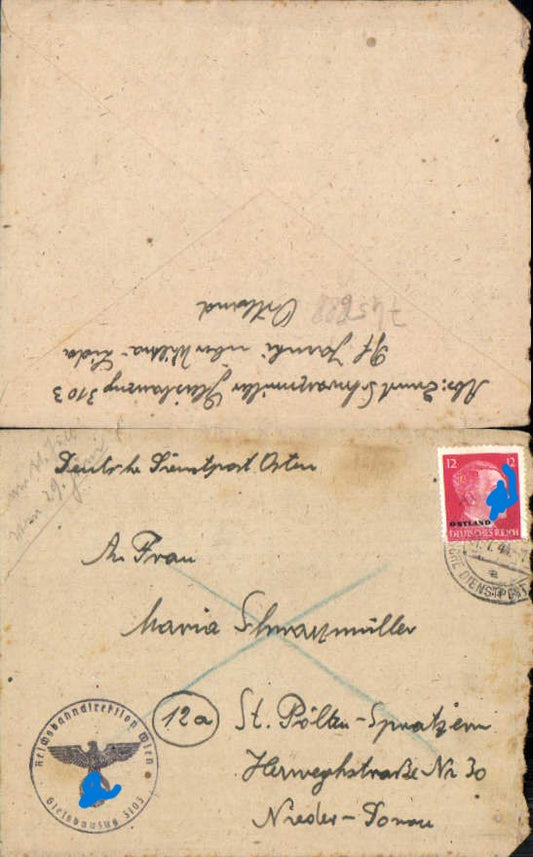 Abs: Schwarzmüller Gleisbauzug 3103
über Wilna-Lida
Ostland
745688
Deutsche Dienstpost Osten
12 12
OSTLAND
DEUTSCHES REICH
DIENSTPOST
An Frau
Maria Schwarzmüller
12a St. Pölten-Spratzern
Herweghstraße Nr 30
Nieder-Donau
Reichsbahndirektion Wien
Gleisbauzug 3103